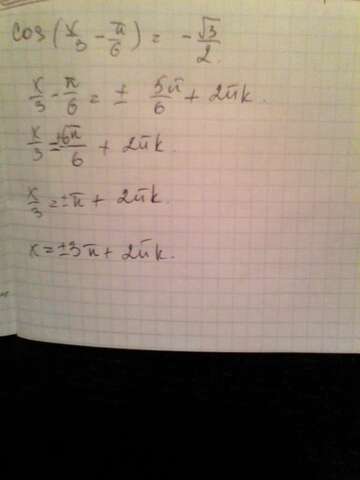 cos(x/3 - π/6) = - √3/2.
x/3 - π/6 = ± 5π/6 + 2πk.
x/3 = ±6π/6 + 2πk.
x/3 = ±π + 2πk.
x = ±3π + 2πk.